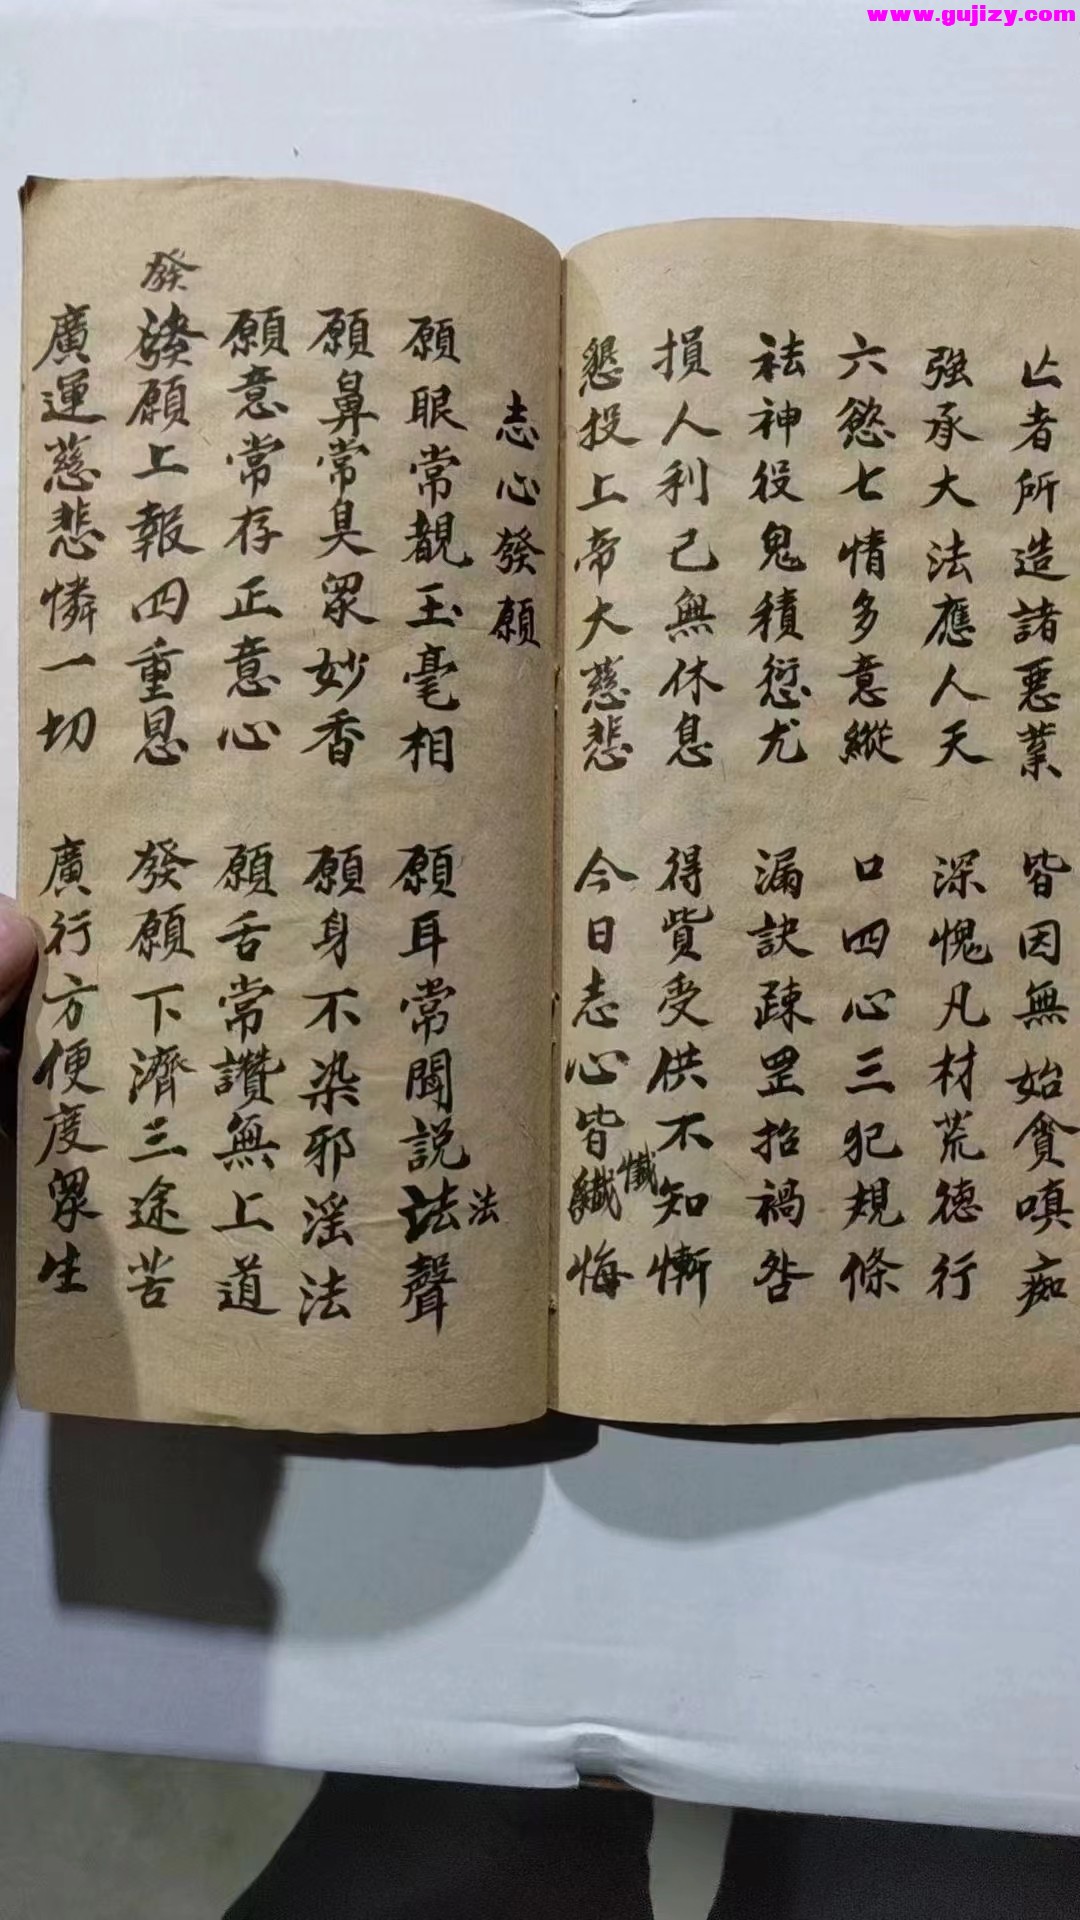 www.gujizy.com
亾者所造諸惡業 皆因無始貪嗔痴
强承大法應人天 深愧凡材荒德行
六慾七情多意縱 口四心三犯規條
袪神役鬼積愆尤 漏訣疎罡招禍咎
損人利己無休息 得貲受供不知慚
懇投上帝大慈悲 今日志心皆懺悔
懺
志心發願
願眼常覩玉毫相 願耳常聞說法聲
法
願鼻常臭眾妙香 願身不染邪淫法
願意常存正意心 願舌常讚無上道
發
發願上報四重恩 發願下濟三途苦
廣運慈悲憐一切 廣行方便度眾生